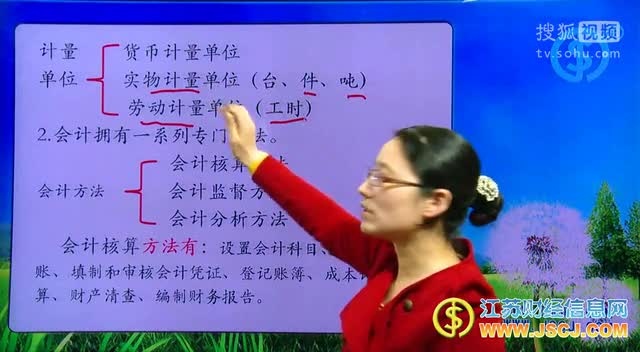 搜狐视频
tv.sohu.com
计量
单位
货币计量单位
实物计量单位（台、件、吨）
劳动计量单位（工时）
2.会计拥有一系列专门 法。
会计方法
会计核算 法
会计监督方
会计分析方法
会计核算方法有：设置会计科目、
账、填制和审核会计凭证、登记账簿、成本
算、财产清查、编制财务报告。
江苏财经信息网
www.JSCJ.com